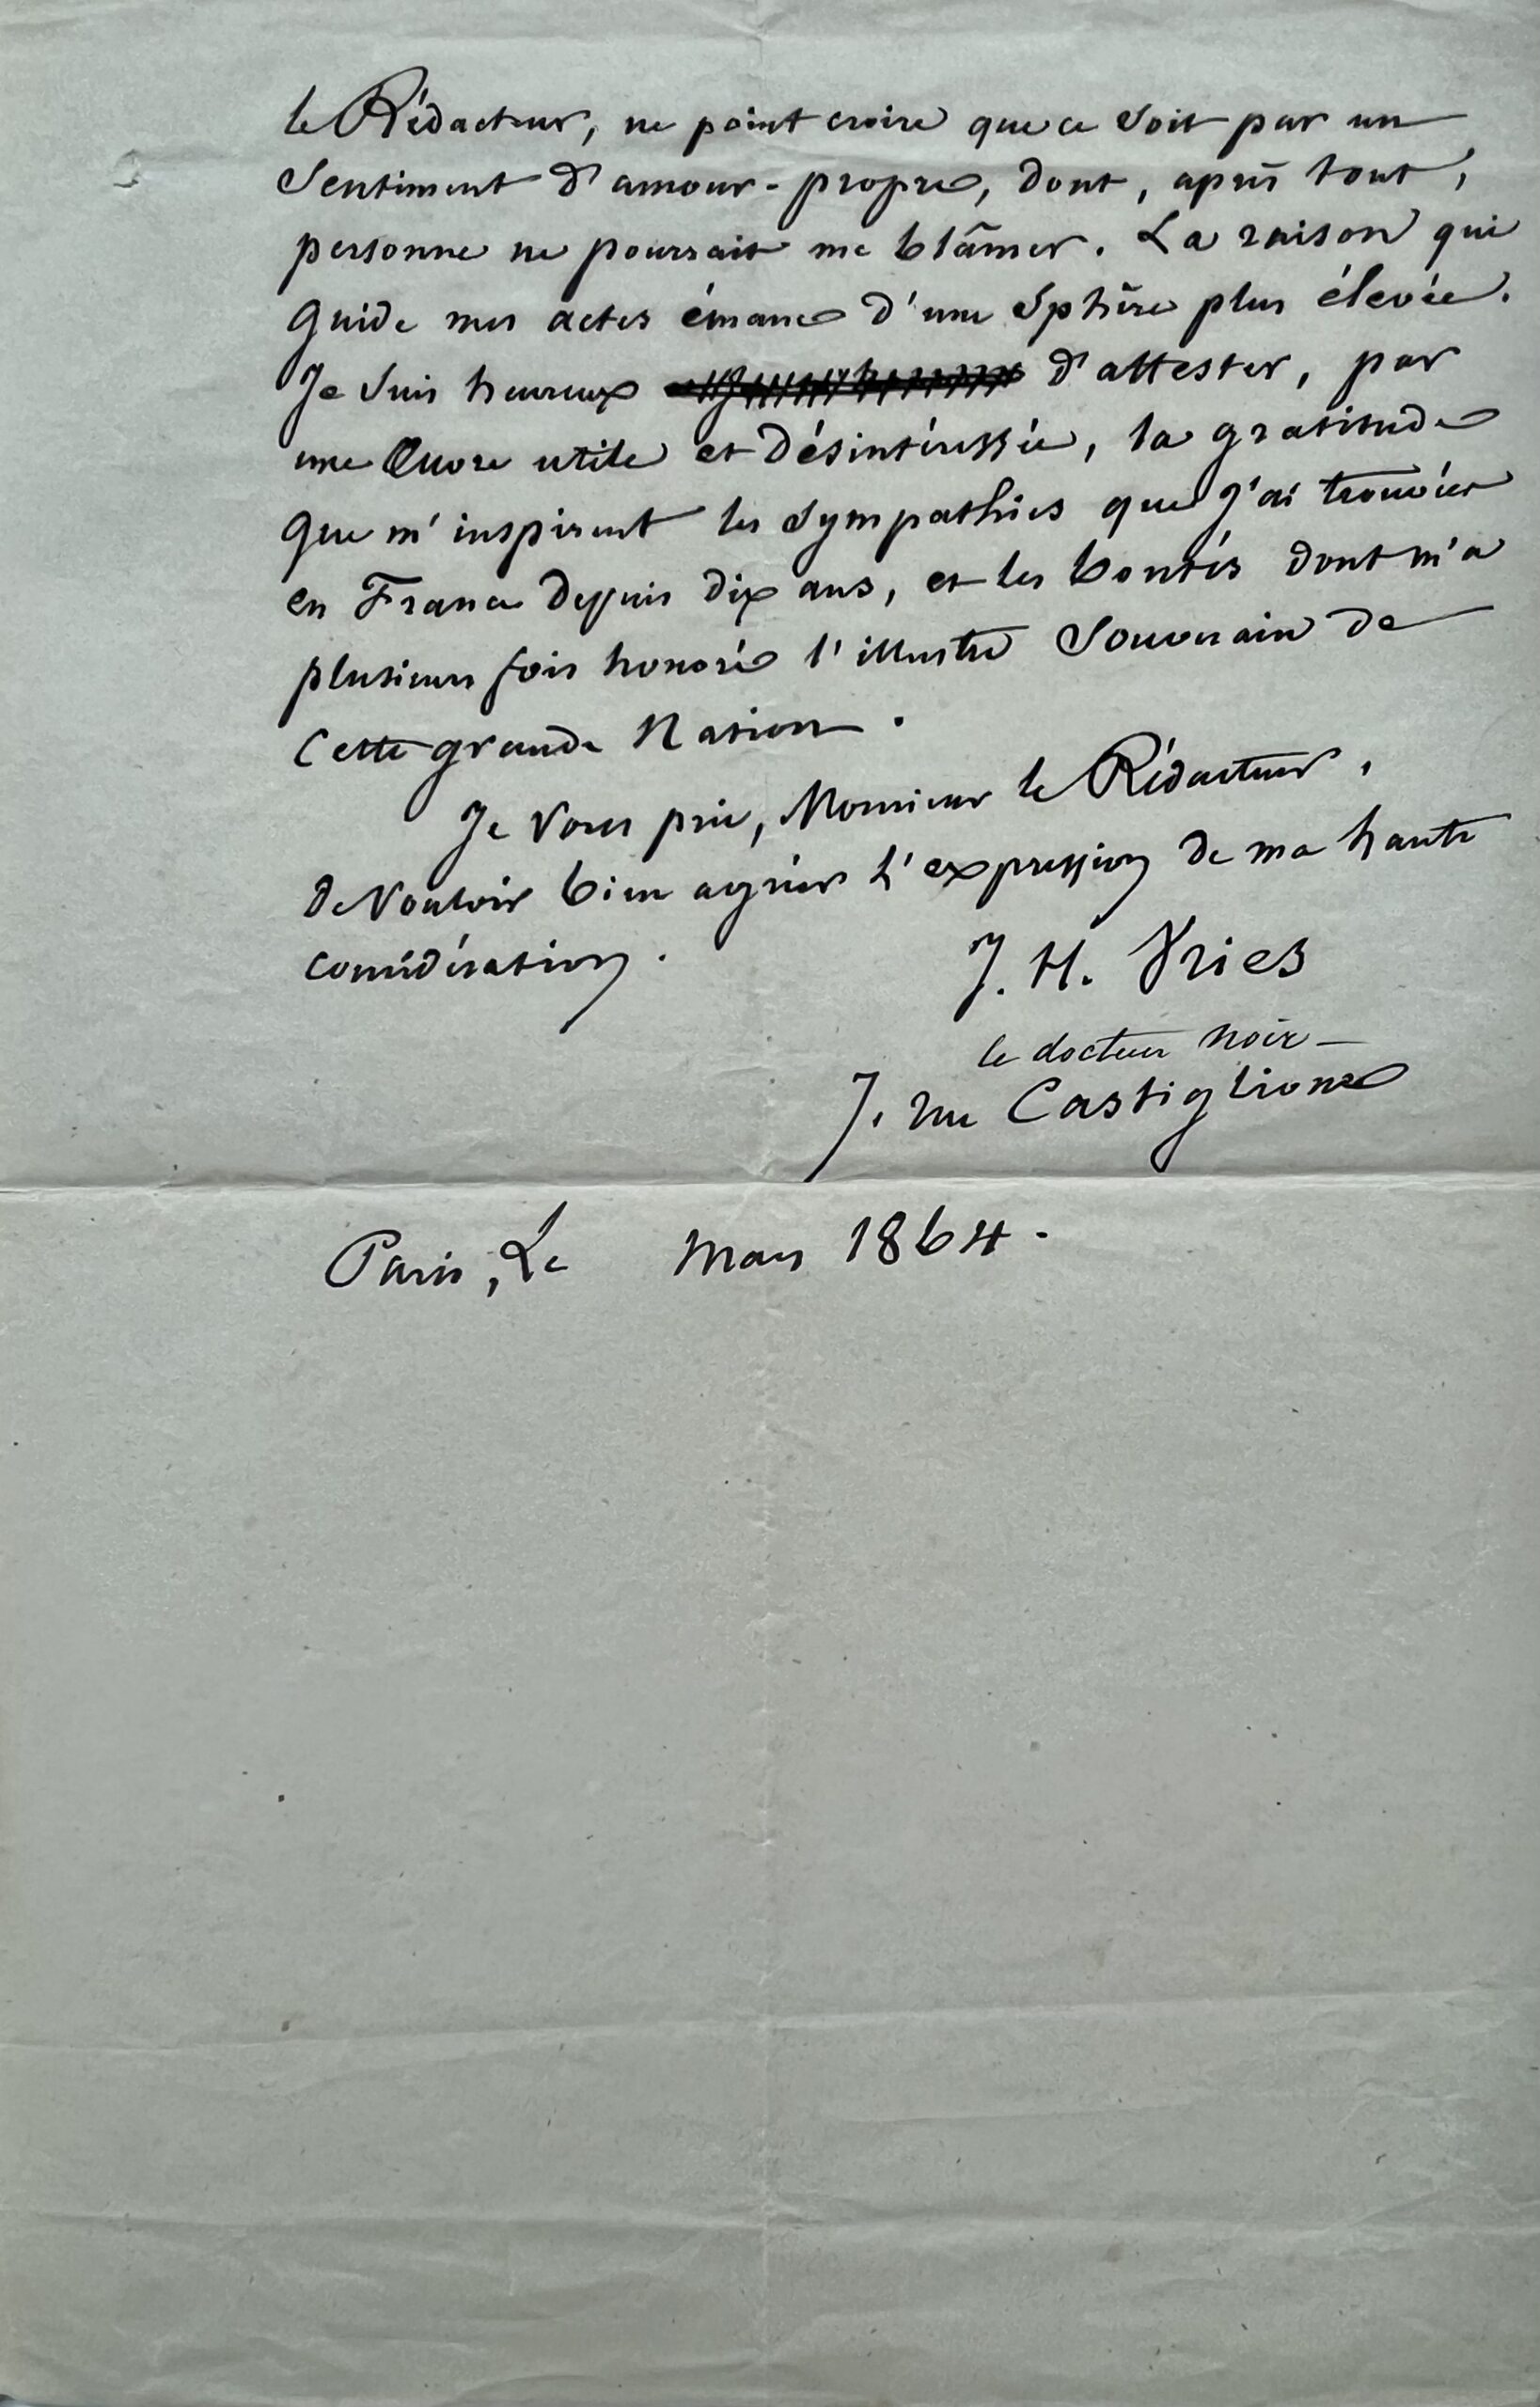 le Rédacteur, ne point croire que ce soit par un
Sentiment d'amour-propre, dont, après tout,
personne ne pourrait me blâmer. La raison qui
guide mes actes émane d'une Sphère plus élevée.
Je suis heureux d'attester, par
une Œuvre utile et désintéressée, la gratitude
que m'inspirent les Sympathies que j'ai trouvées
en France depuis dix ans, et les bontés dont m'a
plusieurs fois honoré l'illustre Souverain de
Cette grande Nation.
Je vous prie, Monsieur le Rédacteur,
de Vouloir bien agréer l'expression de ma haute
considération.
J. H. Vries
le docteur noir—
7. rue Castiglione
Paris, Le mars 1864.